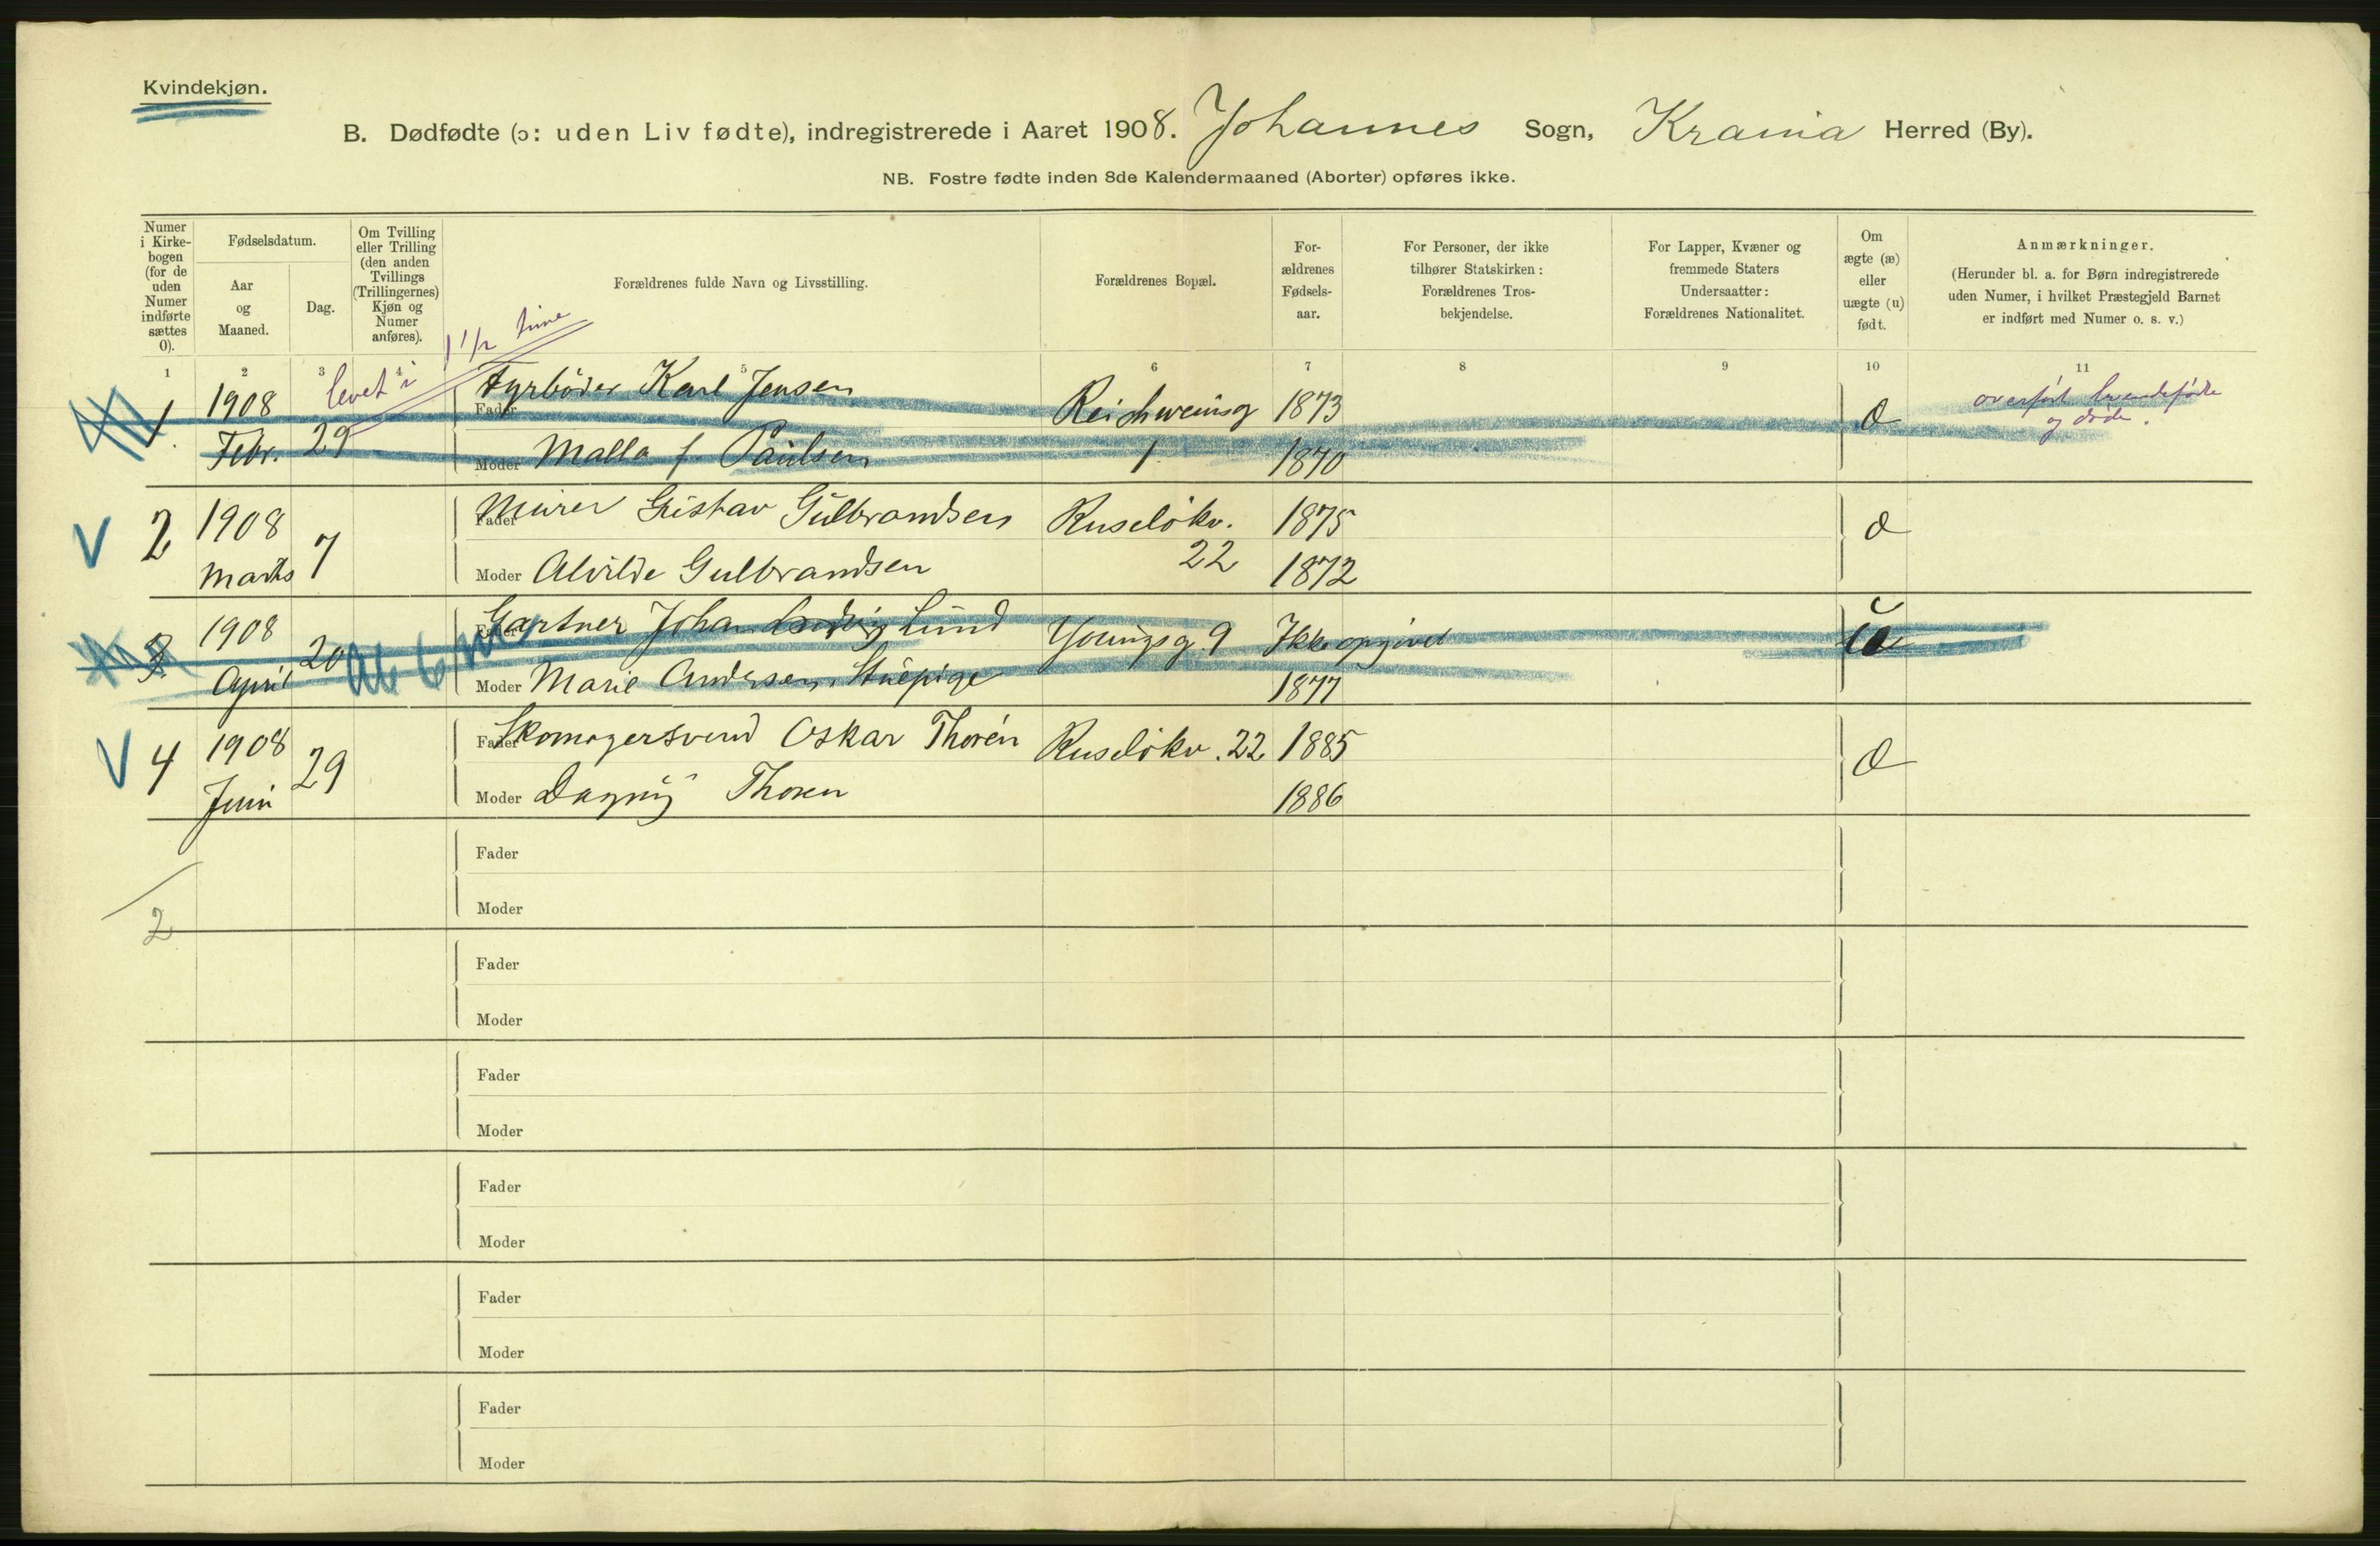 Kvindekjøn.
B. Dødfødte (ɔ: uden Liv fødte), indregistrerede i Aaret 1908. Johannes Sogn, Krania Herred (By).
NB. Fostre fødte inden 8de Kalendermaaned (Aborter) opføres ikke.
Numer i Kirke-bogen (for de uden Numer indførte sættes 0).
Fødselsdatum.
Aar og Maaned.
Dag.
Om Tvilling eller Trilling (den anden Tvillings (Trillingernes) Kjøn og Numer anføres).
Forældrenes fulde Navn og Livsstilling.
Forældrenes Bopæl.
For-ældrenes Fødsels-aar.
For Personer, der ikke tilhører Statskirken: Forældrenes Tros-bekjendelse.
For Lapper, Kvæner og fremmede Staters Undersaatter: Forældrenes Nationalitet.
Om ægte (æ) eller uægte (u) født.
Anmærkninger.
(Herunder bl. a. for Børn indregistrerede uden Numer, i hvilket Præstegjeld Barnet er indført med Numer o. s. v.)
1 2 3 4 5 6 7 8 9 10 11
levet i 1 1/2 time
1. 1908 Fader Fyrböder Karl Jensen Reichweinsg 1873 æ overført levendefödte
og döde.
Febr. 29 Moder Malla f. Paulsen 1 1870
V 2 1908 Fader Murer Gustav Gulbrandsen Ruselökv. 1875 æ
Marts 7 Moder Alvilde Gulbrandsen 22 1872
3 1908 Fader Gartner Johan Ludvig Lund Youngsg. 9 Ikke opgivet
April 20 Moder Marie Andersen, Stuepige 1877
V 4 1908 Fader Skomagersvend Oskar Thorén Ruselökv. 22 1885 æ
Juni 29 Moder Dagny Thoren 1886
Fader
Moder
2
Fader
Moder
Fader
Moder
Fader
Moder
Fader
Moder
Fader
Moder